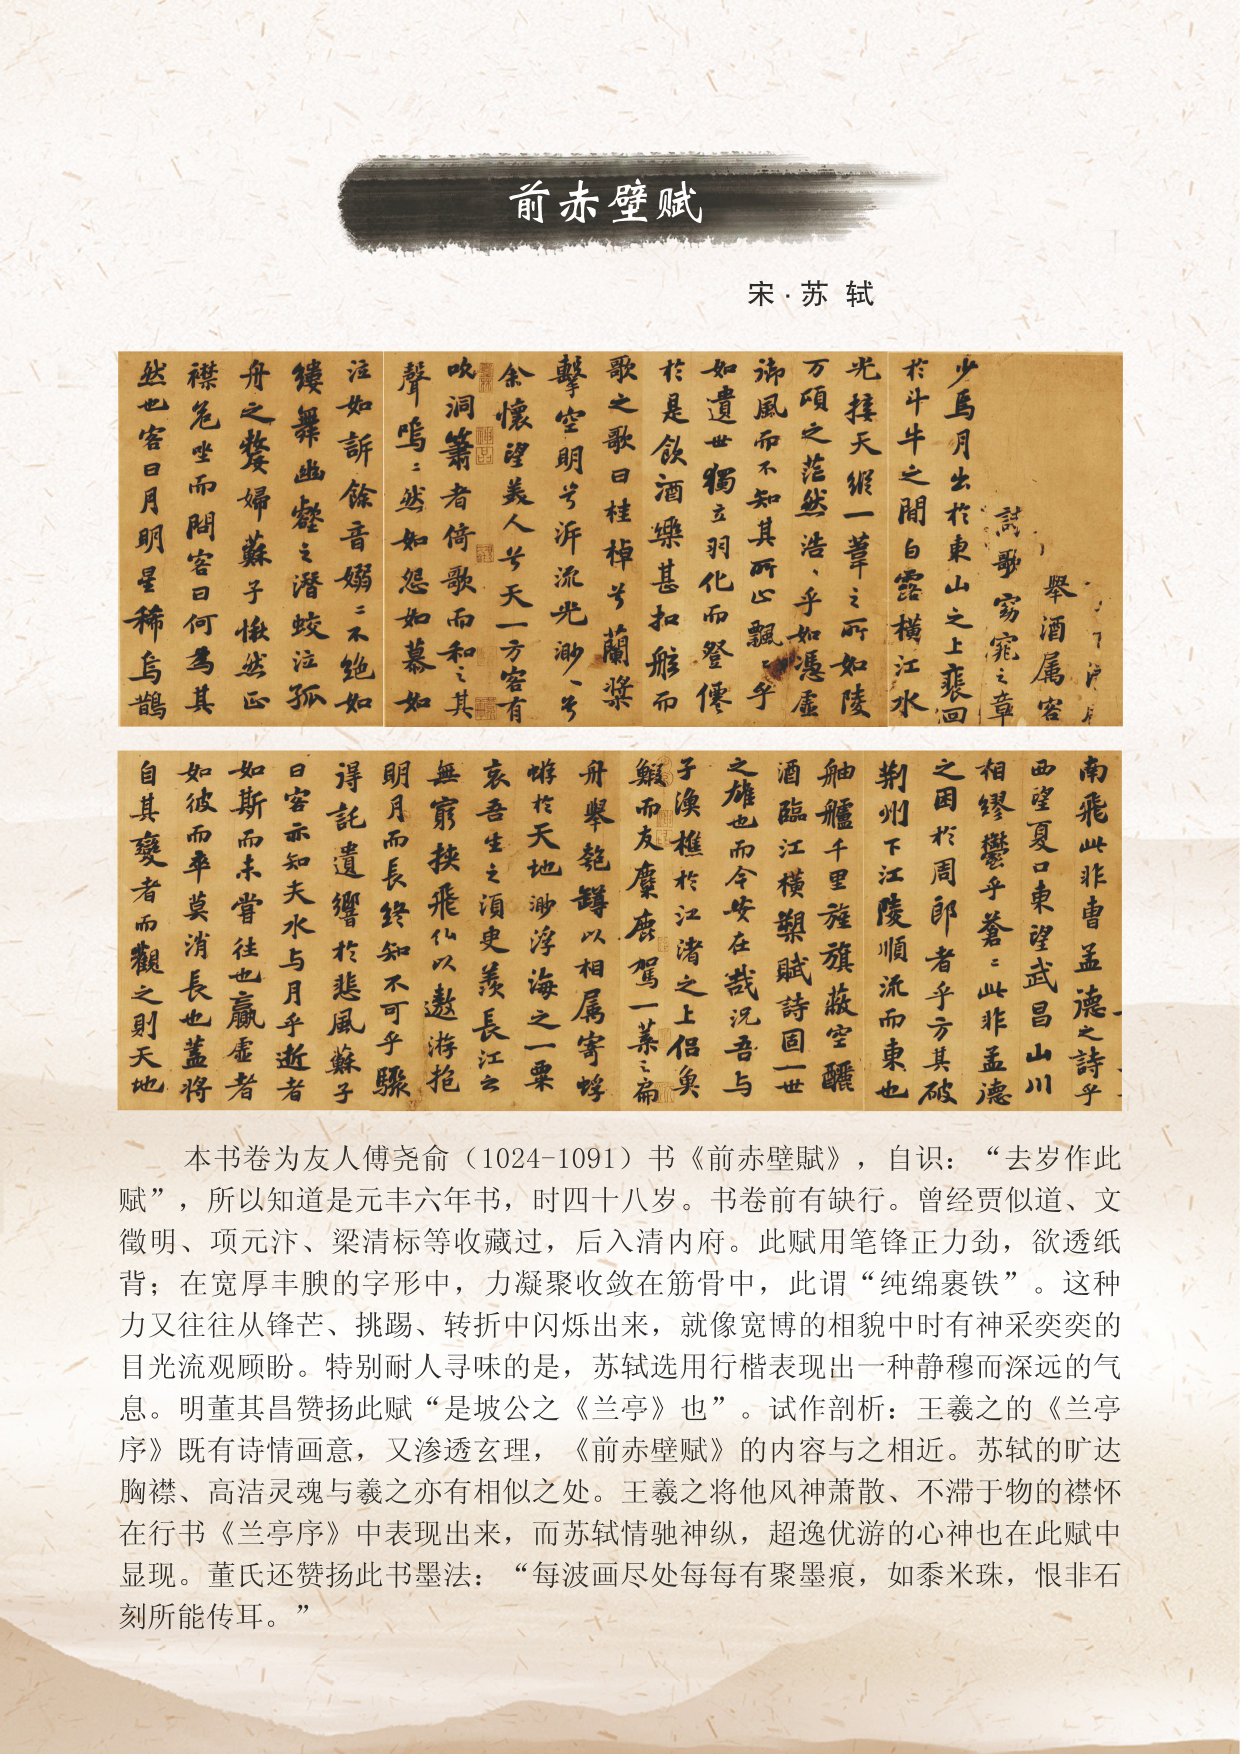 前赤壁赋
宋·苏 轼
舉酒属客
誦歌窈窕之章
少焉月出於東山之上裴回
於斗牛之間白露横江水
光接天縱一葦之所如陵
万頃之茫然浩〻乎如馮虚
御風而不知其所止飄〻乎
如遺世獨立羽化而登僊
於是飲酒樂甚扣舷而
歌之歌曰桂棹兮蘭槳
擊空明兮泝流光渺〻兮
余懷望美人兮天一方客有
吹洞簫者倚歌而和之其
聲嗚〻然如怨如慕如
泣如訴餘音嫋〻不绝如
縷舞幽壑之潛蛟泣孤
舟之嫠婦蘇子愀然正
襟危坐而問客曰何為其
然也客曰月明星稀烏鵲
南飛此非曹孟德之詩乎
西望夏口東望武昌山川
相繆鬱乎蒼〻此非孟德
之困於周郎者乎方其破
荆州下江陵順流而東也
舳艫千里旌旗蔽空釃
酒臨江橫槊賦詩固一世
之雄也而今安在哉況吾与
子漁樵於江渚之上侣魚
鰕而友麋鹿駕一葉之扁
舟舉匏罇以相属寄蜉
蝣於天地渺浮海之一粟
哀吾生之須臾羨長江之
無窮挾飛仙以遨游抱
明月而長終知不可乎驟
得託遺響於悲風蘇子
曰客亦知夫水与月乎逝者
如斯而未嘗往也贏虚者
如彼而卒莫消長也蓋將
自其變者而觀之則天地
本书卷为友人傅尧俞（1024-1091）书《前赤壁賦》，自识：“去岁作此
赋”，所以知道是元丰六年书，时四十八岁。书卷前有缺行。曾经贾似道、文
徵明、项元汴、梁清标等收藏过，后入清内府。此赋用笔锋正力劲，欲透纸
背；在宽厚丰腴的字形中，力凝聚收敛在筋骨中，此谓“纯绵裹铁”。这种
力又往往从锋芒、挑踢、转折中闪烁出来，就像宽博的相貌中时有神采奕奕的
目光流观顾盼。特别耐人寻味的是，苏轼选用行楷表现出一种静穆而深远的气
息。明董其昌赞扬此赋“是坡公之《兰亭》也”。试作剖析：王羲之的《兰亭
序》既有诗情画意，又渗透玄理，《前赤壁赋》的内容与之相近。苏轼的旷达
胸襟、高洁灵魂与羲之亦有相似之处。王羲之将他风神萧散、不滞于物的襟怀
在行书《兰亭序》中表现出来，而苏轼情驰神纵，超逸优游的心神也在此赋中
显现。董氏还赞扬此书墨法：“每波画尽处每每有聚墨痕，如黍米珠，恨非石
刻所能传耳。”